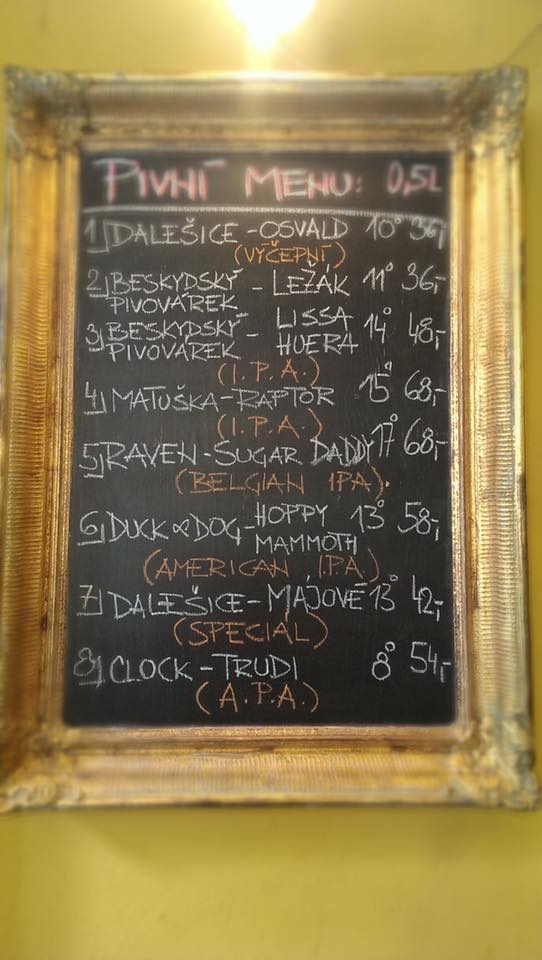 PIVNÍ MENU: 0,5L
1) DALEŠICE - OSVALD 10° 36,-
(VÝČEPNÍ)
2) BESKYDSKÝ PIVOVÁREK - LEŽÁK 11° 36,-
3) BESKYDSKÝ PIVOVÁREK - LISSA HUERA 14° 48,-
(I.P.A.)
4) MATUŠKA - RAPTOR 15° 68,-
(I.P.A.)
5) RAVEN - SUGAR DADDY 17° 68,-
(BELGIAN IPA).
6) DUCK & DOG - HOPPY MAMMOTH 13° 58,-
(AMERICAN I.P.A.)
7) DALEŠICE - MÁJOVÉ 13° 42,-
(SPECIAL)
8) CLOCK - TRUDI 8° 54,-
(A.P.A.)